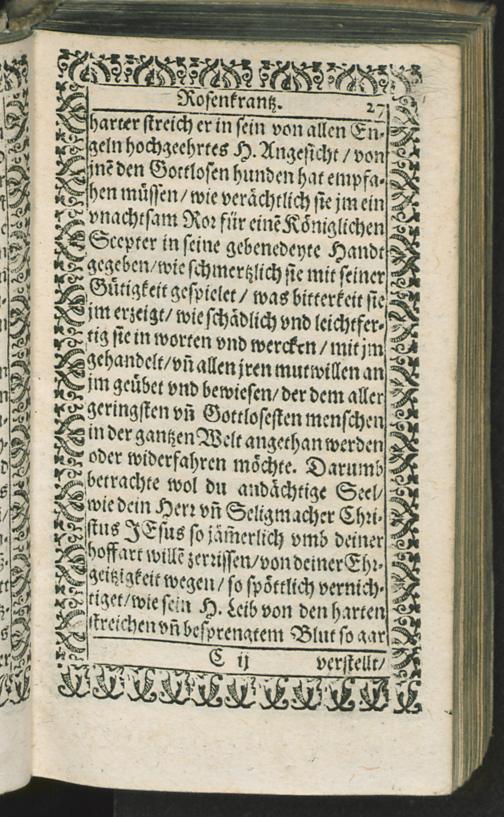 Rosenkrantz. 27
harter streich er in sein von allen En-
geln hochgeehrtes H. Angesicht / von
jnẽ den Gottlosen hunden hat empfa-
hen müssen / wie verächtlich sie jm ein
vnachtsam Ror für einẽ Königlichen
Scepter in seine gebenedeyte Handt
gegeben / wie schmertzlich sie mit seiner
Gütigkeit gespielet / was bitterkeit sie
jm erzeigt / wie schädlich vnd leichtfer-
tig sie in worten vnd wercken / mit jm
gehandelt / vñ allen jren mutwillen an
jm geübet vnd bewiesen / der dem aller
geringsten vñ Gottlosesten menschen
in der gantzen Welt angethan werden
oder widerfahren möchte. Darumb
betrachte wol du andächtige Seel /
wie dein Herr vñ Seligmacher Chri-
stus JEsus so jäm̃erlich vmb deiner
hoffart willẽ zerrissen / von deiner Ehr-
geitzigkeit wegen / so spöttlich vernich-
tiget / wie sein H. Leib von den harten
streichen vñ besprengtem Blut so gar
C ij verstellt /